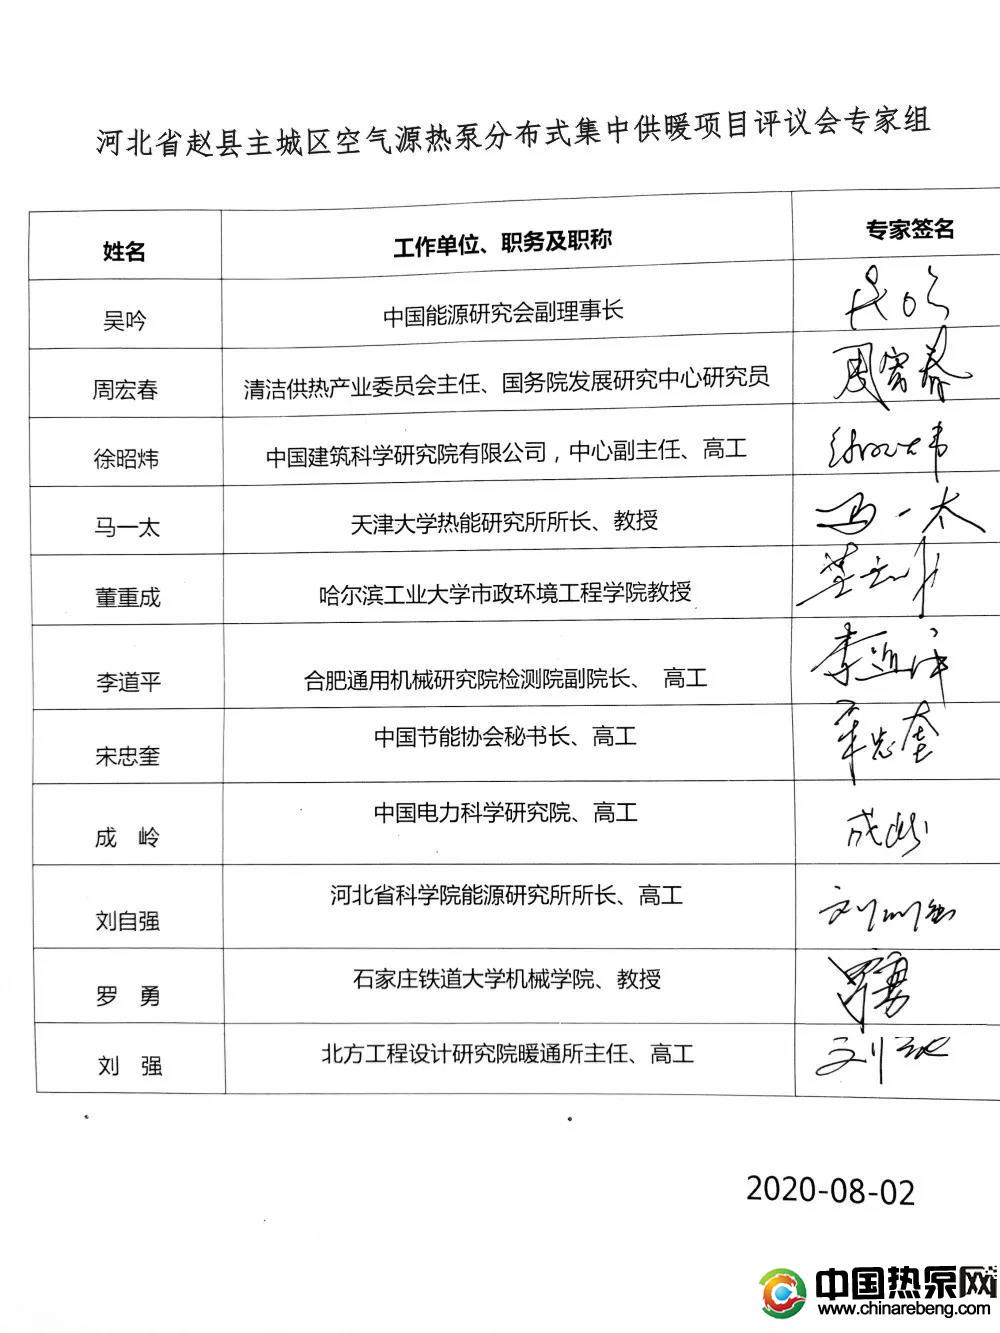 河北省赵县主城区空气源热泵分布式集中供暖项目评议会专家组
姓名 工作单位、职务及职称 专家签名
吴吟 中国能源研究会副理事长 吴吟
周宏春 清洁供热产业委员会主任、国务院发展研究中心研究员 周宏春
徐昭炜 中国建筑科学研究院有限公司，中心副主任、高工 徐昭炜
马一太 天津大学热能研究所所长、教授 马一太
董重成 哈尔滨工业大学市政环境工程学院教授 董重成
李道平 合肥通用机械研究院检测院副院长、 高工
宋忠奎 中国节能协会秘书长、高工 宋忠奎
成 岭 中国电力科学研究院、高工 成岭
刘自强 河北省科学院能源研究所所长、高工 刘自强
罗 勇 石家庄铁道大学机械学院、教授 罗勇
刘 强 北方工程设计研究院暖通所主任、高工 刘强
2020-08-02
中国热泵网
www.chinarebeng.com